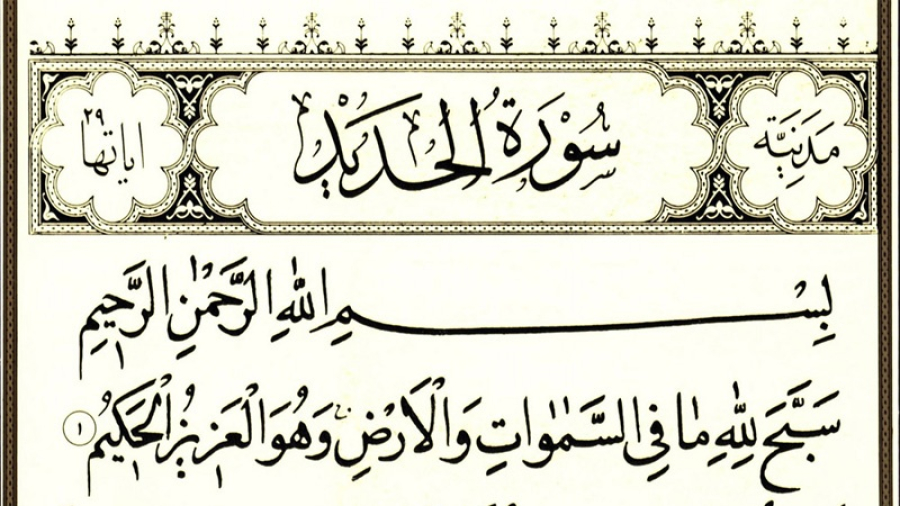 مَدَنِيَّة
سُوْرَةُ الحَدِيْدِ
اياتها ٢٩
بِسْمِ اللهِ الرَّحْمٰنِ الرَّحِيمِ
سَبَّحَ لِلّٰهِ مَا فِي السَّمٰوَاتِ وَالْاَرْضِ وَهُوَ الْعَزِيزُ الْحَكِيمُ ١